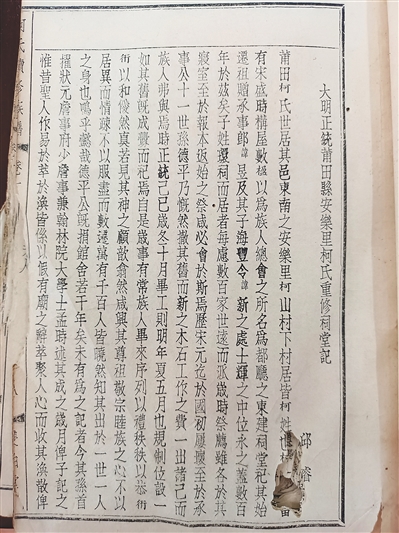 大明正統莆田縣安樂里柯氏重修祠堂記
邱濬
莆田柯氏世居其邑東南之安樂里柯山村下村居皆柯姓世
有宋盛時構屋數楹以為族人總會之所名為都廳之東建祠堂祀其始
遷祖贈承事郎諱昱及其子海豐令諱新之處士鐸之中位永之蓋數百
年於茲矣子姓還祠而居者毋慮數百家世遠而派歲時祭薦雖各於其
寢室至於報本返始之祭咸必會於斯焉歷宋元迄於國初屢壞至於承
事公十一世孫德平乃慨然撤其舊而新之木石工作之費一出諸己而
族人弗與焉時正統己巳歲冬十月畢工則明年夏五月也規制位設一
如其舊既成費而祀焉自是歲事有常族人畢來序列以禮秩秩以恭
術以和優然真若見其神之顧歆翕然咸興其尊祖敬宗睦族之心不以
居異而情疎不以服盡而數遠蓋有千百人皆曉然知其出於一世一人
之身也嗚乎懿哉德平公既捐館舍若干年矣未有為之記者今其孫首
榲狀元詹事府少詹事兼翰林院大學士孟時述其成之歲月俾予記之
惟昔聖人作易於萃於渙皆係以假有廟之辭萃聚人心而收其渙散俾